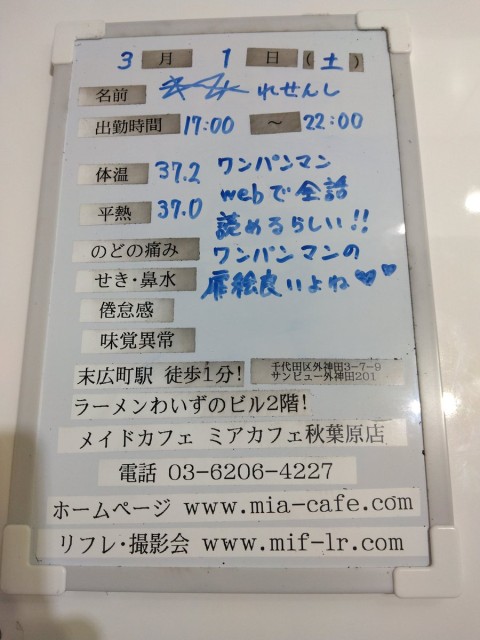 3月1日(土)
名前 れせんし
出勤時間 17:00 ～ 22:00
体温 37.2
平熱 37.0
のどの痛み
せき・鼻水
倦怠感
味覚異常
ワンパンマン
webで全話
読めるらしい!!
ワンパンマンの
扉絵良いよね♥♥
末広町駅 徒歩1分!
千代田区外神田3-7-9
サンビュー外神田201
ラーメンわいずのビル2階!
メイドカフェ ミアカフェ秋葉原店
電話 03-6206-4227
ホームページ www.mia-cafe.com
リフレ・撮影会 www.mif-lr.com